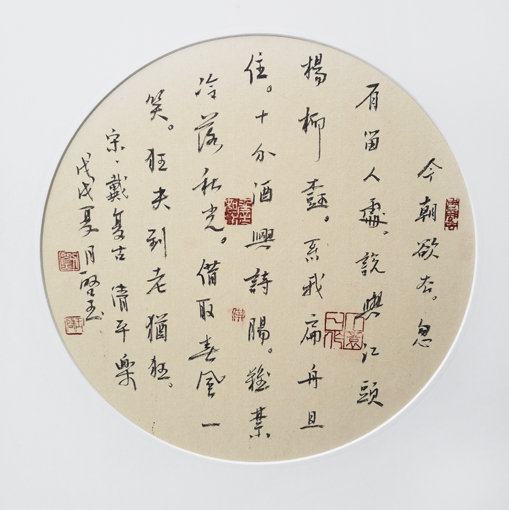 今朝欲去。忽
有留人處。說與江頭
楊柳樹。系我扁舟且
住。十分酒興詩腸。難禁
冷落秋光。借取春風一
笑。狂夫到老猶狂。
宋·戴复古 清平樂
戊戌夏月